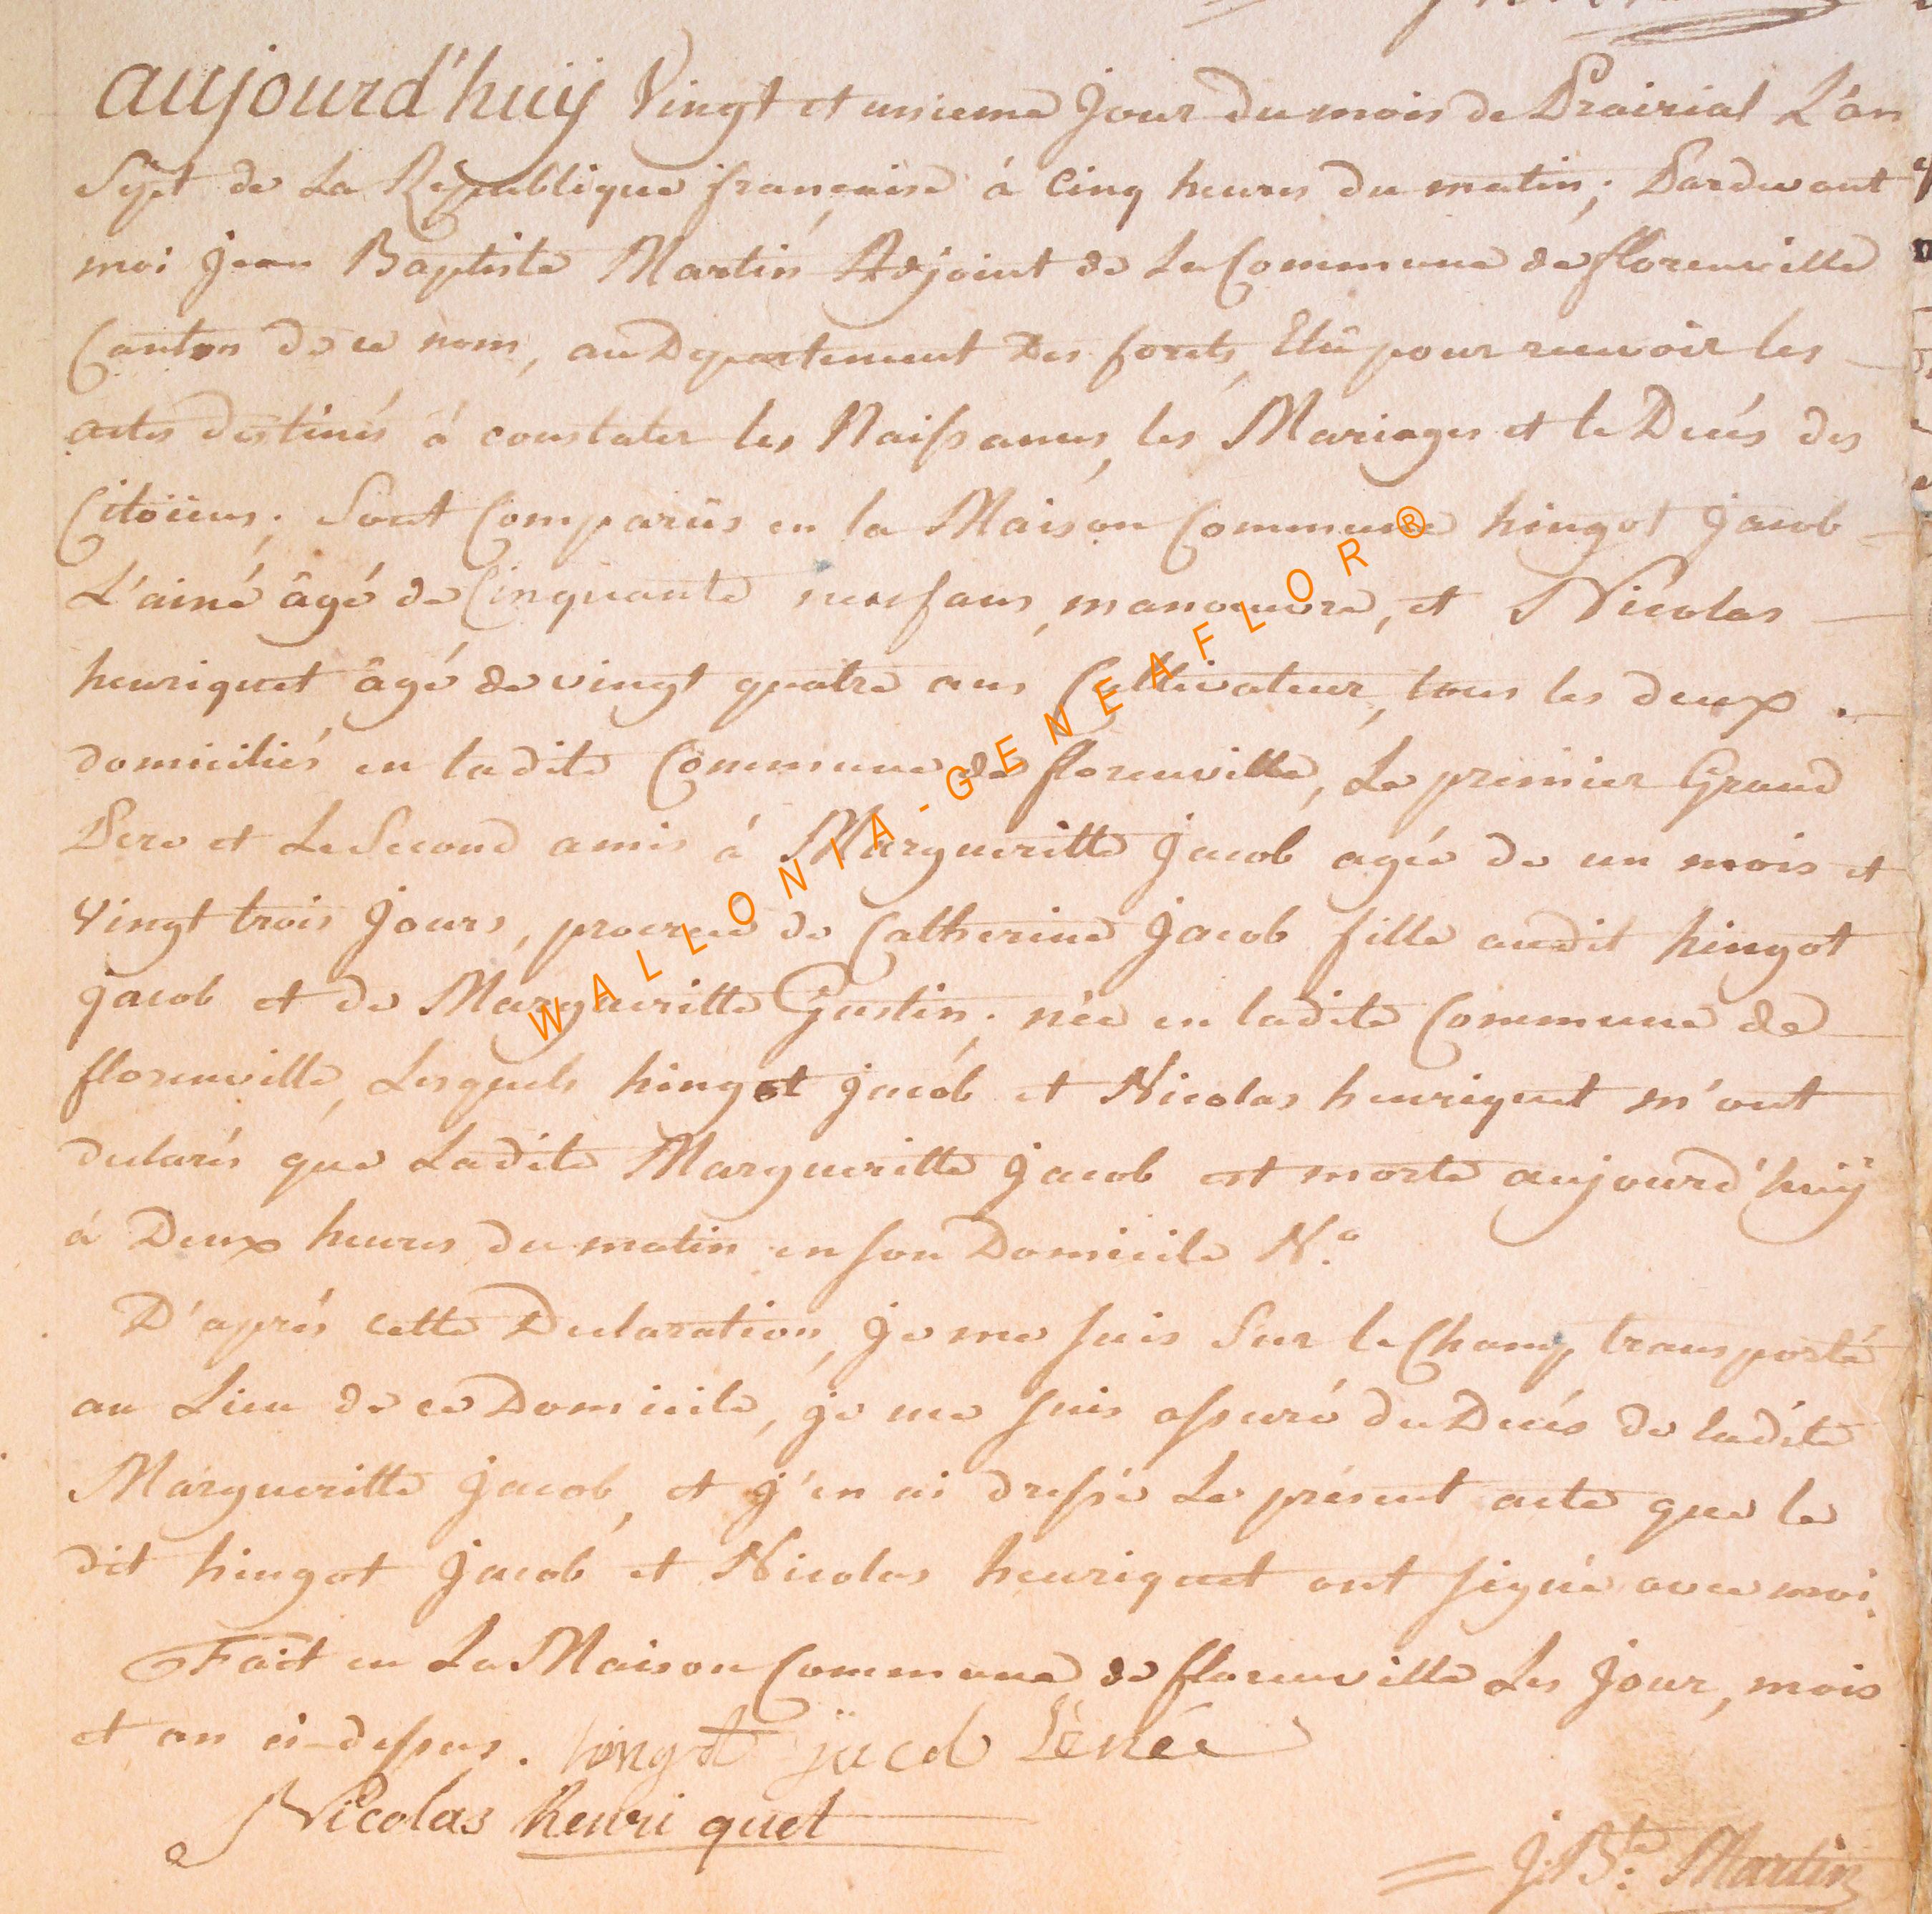 aujourd'huÿ Vingt et unieme Jour du mois de Prairial L'an
Sept de La Republique française à Cinq heures du matin; Pardevant
moi Jean Baptiste Martin Adjoint de La Commune de florenville
Canton de ce nom, au Departement des forets, Elû pour recevoir les
actes destinés à constater les Naissances, les Mariages et le Decés des
Citoïens; Sont Comparüs en la Maison Commune hingot Jacob
L'ainé âgé de Cinquante neuf ans, manoeuvre, et Nicolas
henriquet âgé de vingt quatre ans Cultivateur, tous les deux
domiciliés en ladite Commune de florenville, Le premier Grand
Pere et Le Second amis à Margueritte Jacob agée de un mois et
Vingt trois Jours, procreée de Catherine Jacob fille audit hingot
Jacob et de Margueritte Gustin. née en ladite Commune de
florenville, Lesquels hingot Jacob et Nicolas henriquet m'ont
declarés que Ladite Margueritte Jacob est morte aujourd'huÿ
à Deux heures du matin en son Domicile N.º
D'aprés cette Declaration, Je me suis Sur le Champ transporté
au Lieu de ce Domicile, je me suis assuré du Decés de ladite
Margueritte Jacob, et j'en ai dressé Le présent acte que le
dit hingot Jacob et Nicolas henriquet ont signé avec moi.
Fait en La Maison Commune de florenville Les Jour, mois
et an ci-dessus. hingot jacob Lénée
Nicolas henri quet
J: B:te Martin
WALLONIA-GENEAFLOR®